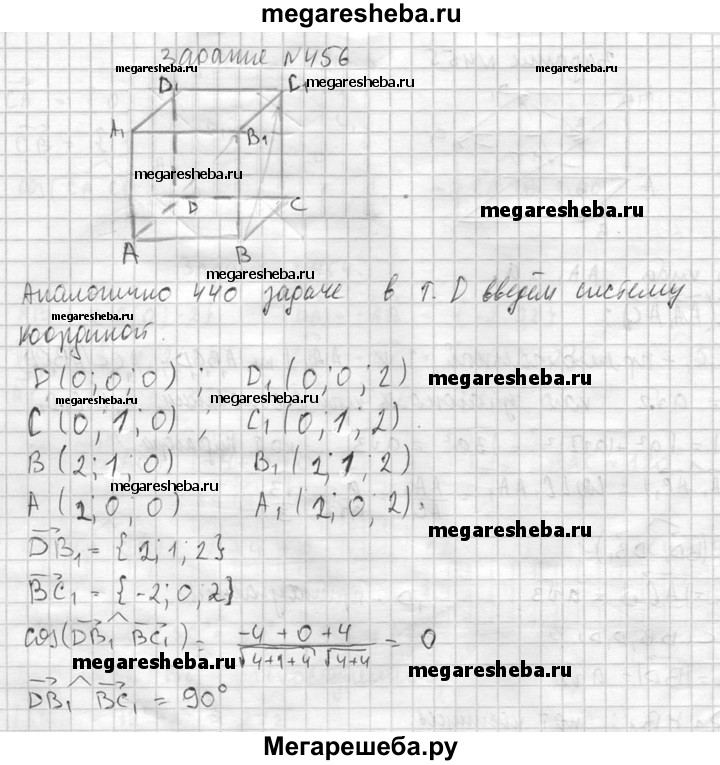 megaresheba.ru
Задание №456
megaresheba.ru
D₁ megaresheba.ru C₁
A₁ B₁
megaresheba.ru
D C
megaresheba.ru
A B
megaresheba.ru
Аналогично 440 задаче в т. D введём систему
megaresheba.ru
координат.
D (0; 0; 0) ; D₁ (0; 0; 2)
megaresheba.ru
megaresheba.ru
C (0; 1; 0) ; C₁ (0; 1; 2)
B (2; 1; 0) B₁ (2; 1; 2)
megaresheba.ru
A (2; 0; 0) A₁ (2; 0; 2).
megaresheba.ru
DB₁ = {2; 1; 2}
BC₁ = {-2; 0; 2}
cos(DB₁ ^ BC₁) = (-4 + 0 + 4) / (√4+1+4 √4+4) = 0
megaresheba.ru
megaresheba.ru
DB₁ ^ BC₁ = 90°
Мегарешеба.ру